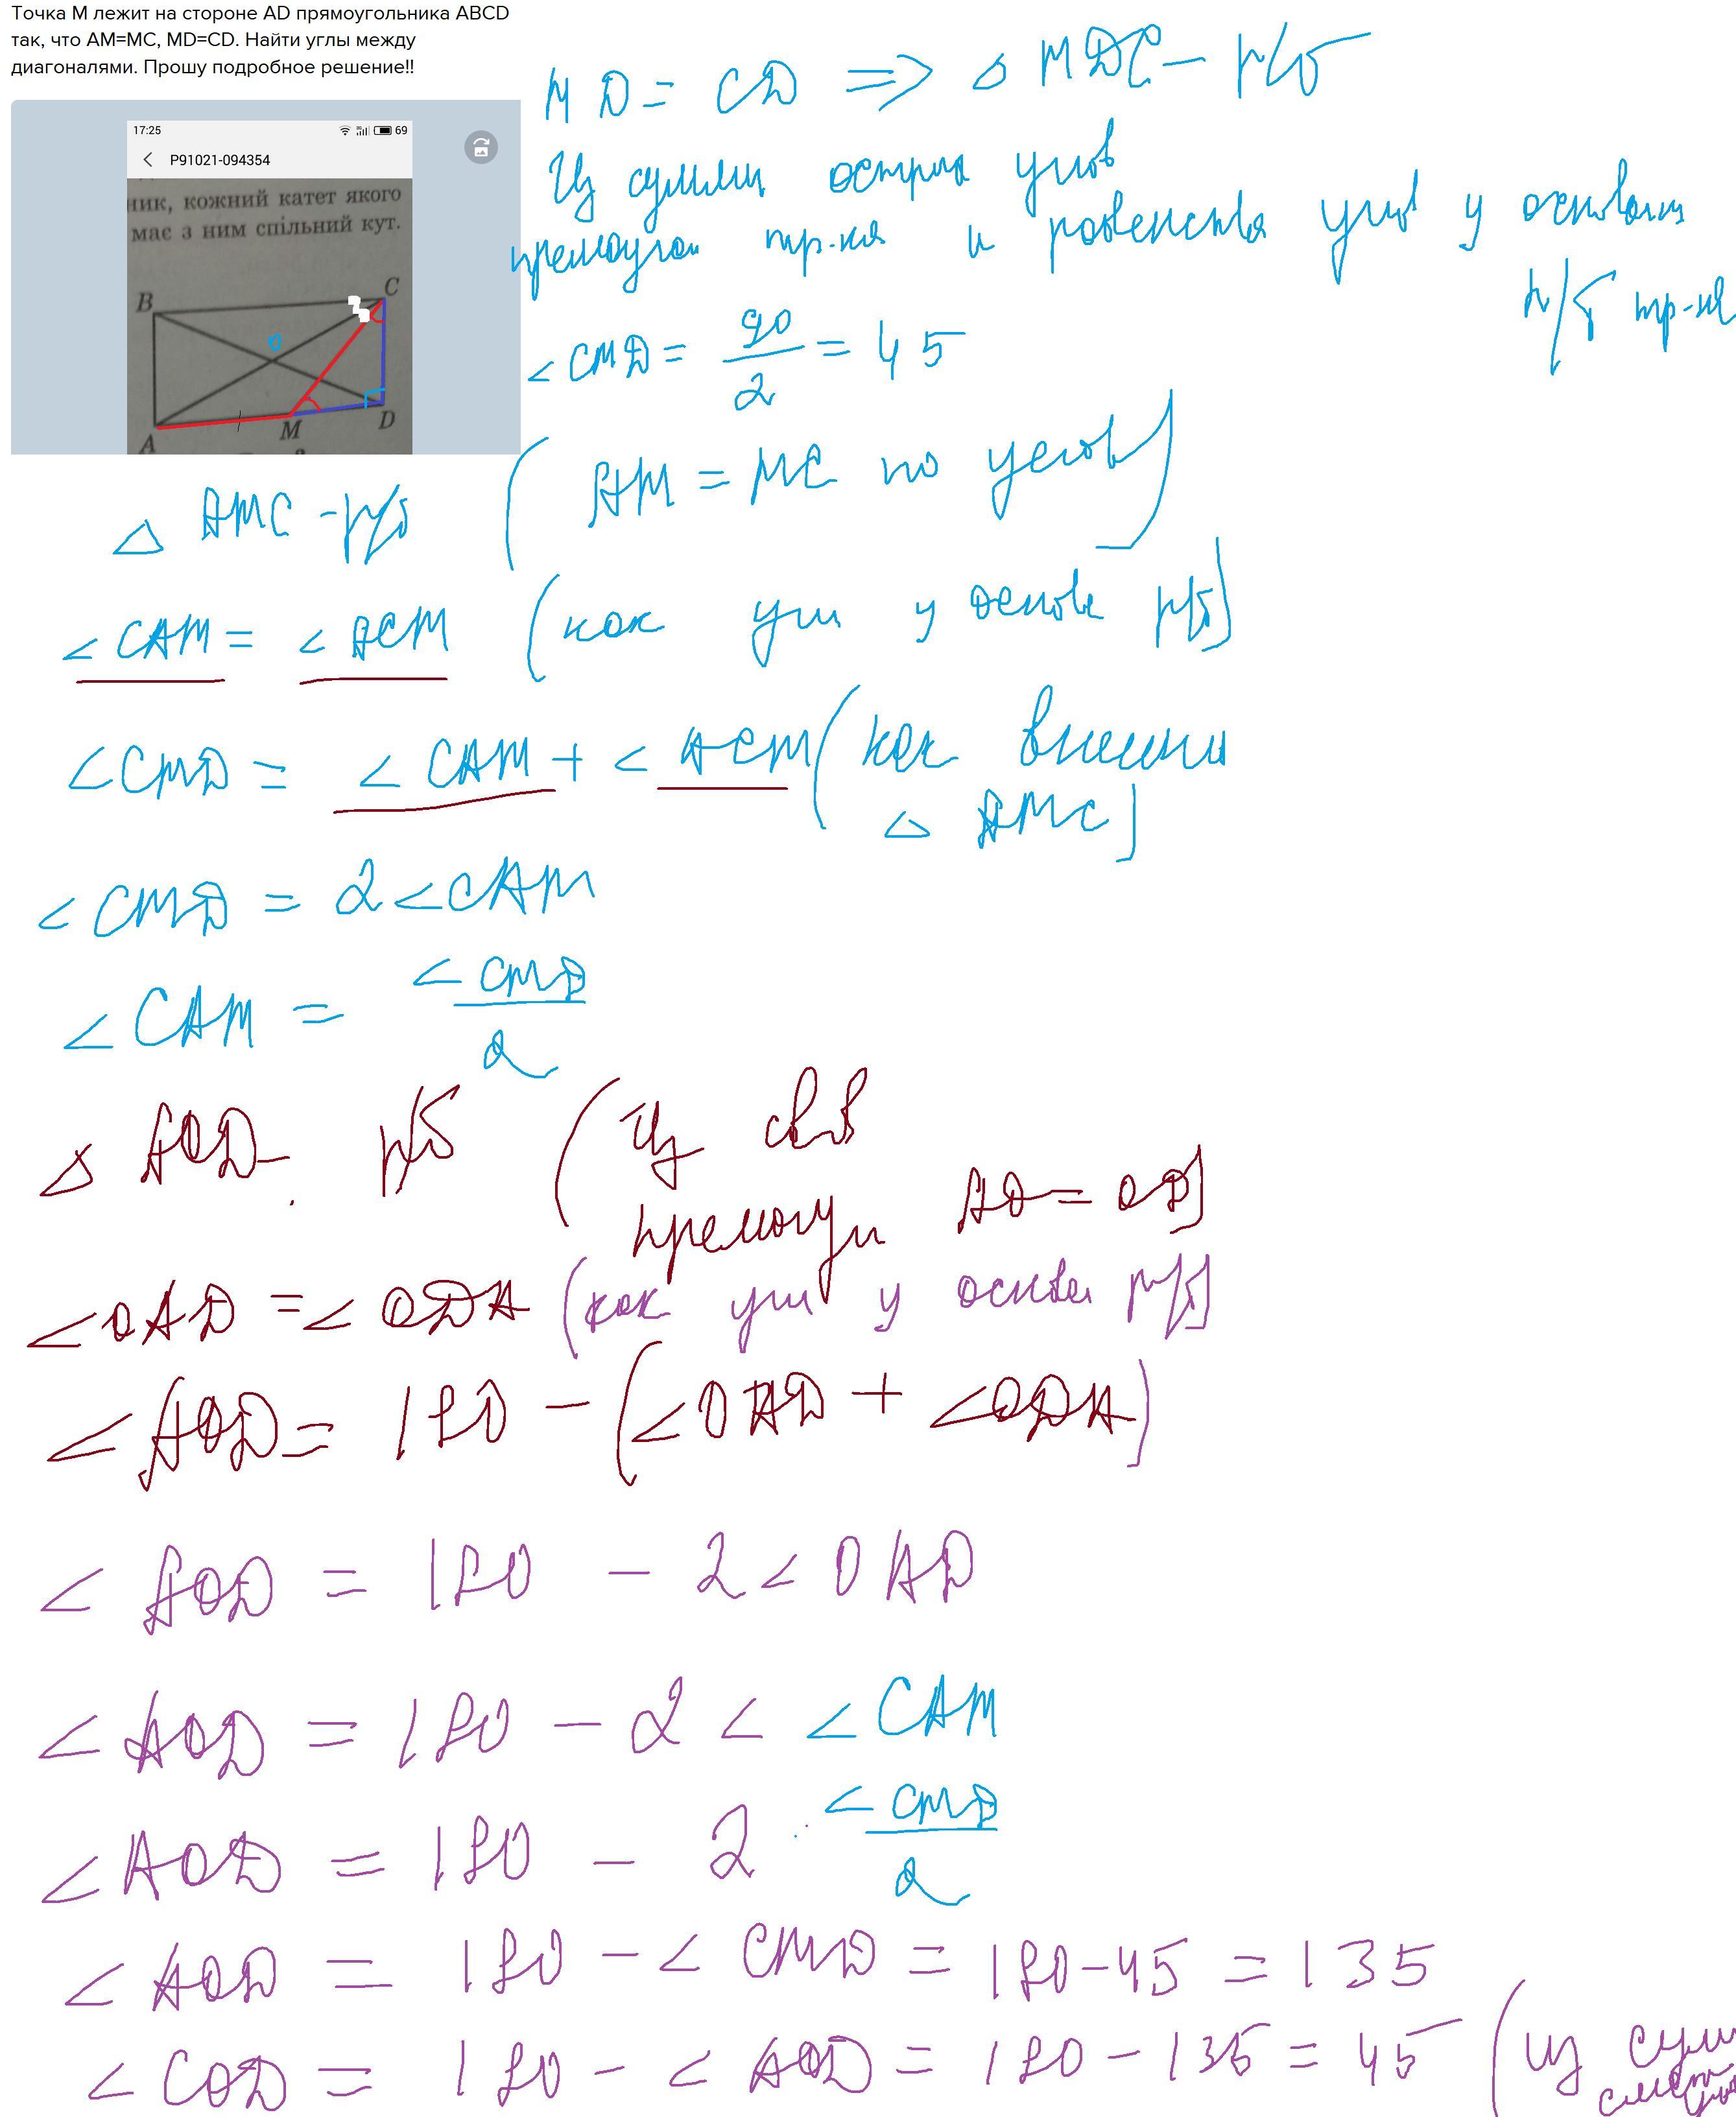 Точка M лежит на стороне AD прямоугольника ABCD
так, что AM=MC, MD=CD. Найти углы между
диагоналями. Прошу подробное решение!!
17:25 69
P91021-094354
ник, кожний катет якого
має з ним спільний кут.
B C
O
A M D
MD = CD => △ MDC - р/б
Из суммы острых углов
тр-ка и равенства углов у основан
р/б тр-ка
∠CMD = 90/2 = 45
△ AMC - р/б (AM = MC по услов)
∠CAM = ∠ACM (как угл у основа р/б)
∠CMD = ∠CAM + ∠ACM (как внешн
△ AMC)
∠CMD = 2∠CAM
∠CAM = ∠CMD/2
△ AOD - р/б (Из свв
прямоуг AO = OD)
∠OAD = ∠ODA (как угл у основа р/б)
∠AOD = 180 - (∠OAD + ∠ODA)
∠AOD = 180 - 2∠OAD
∠AOD = 180 - 2∠ ∠CAM
∠AOD = 180 - 2 ∠CMD/2
∠AOD = 180 - ∠CMD = 180-45 = 135
∠COD = 180 - ∠AOD = 180 - 135 = 45 (из сум